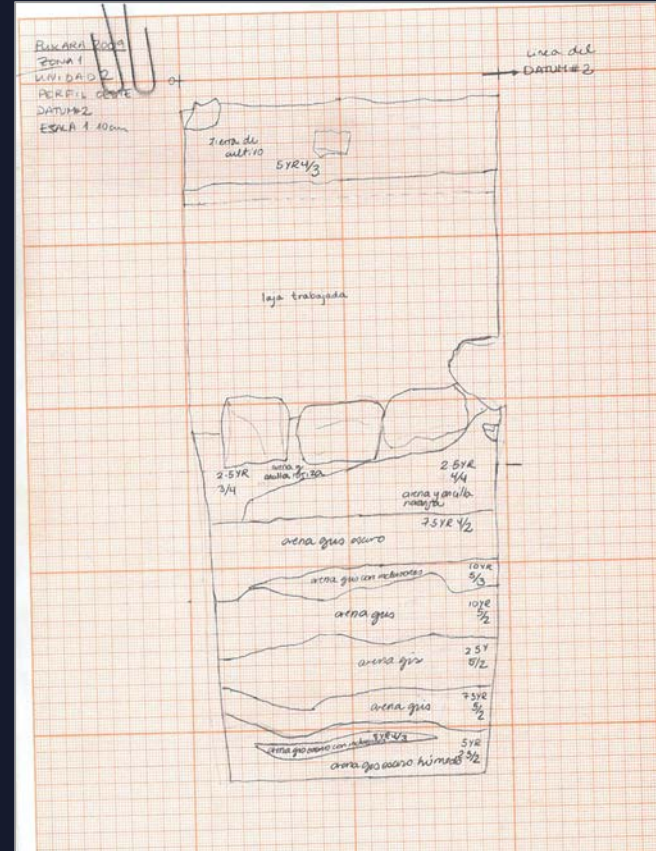 PUKARA 2009
ZONA 1
UNIDAD 2
PERFIL OESTE
DATUM#2
ESCALA 1:10cm
Linea del
DATUM#2
Tierra de
cultivo
5YR4/3
laja trabajada
2.5YR
3/4
arena y
arcilla rojiza
2.5YR
4/4
arena y arcilla
naranja
7.5YR 4/2
arena gris oscuro
arena gris con inclusiones
10YR
5/3
arena gris
10YR
5/2
arena gris
2.5Y
arena gris
7.5YR
5/2
arena gris oscuro con
5YR
2.5/2
arena gris oscuro húmedo